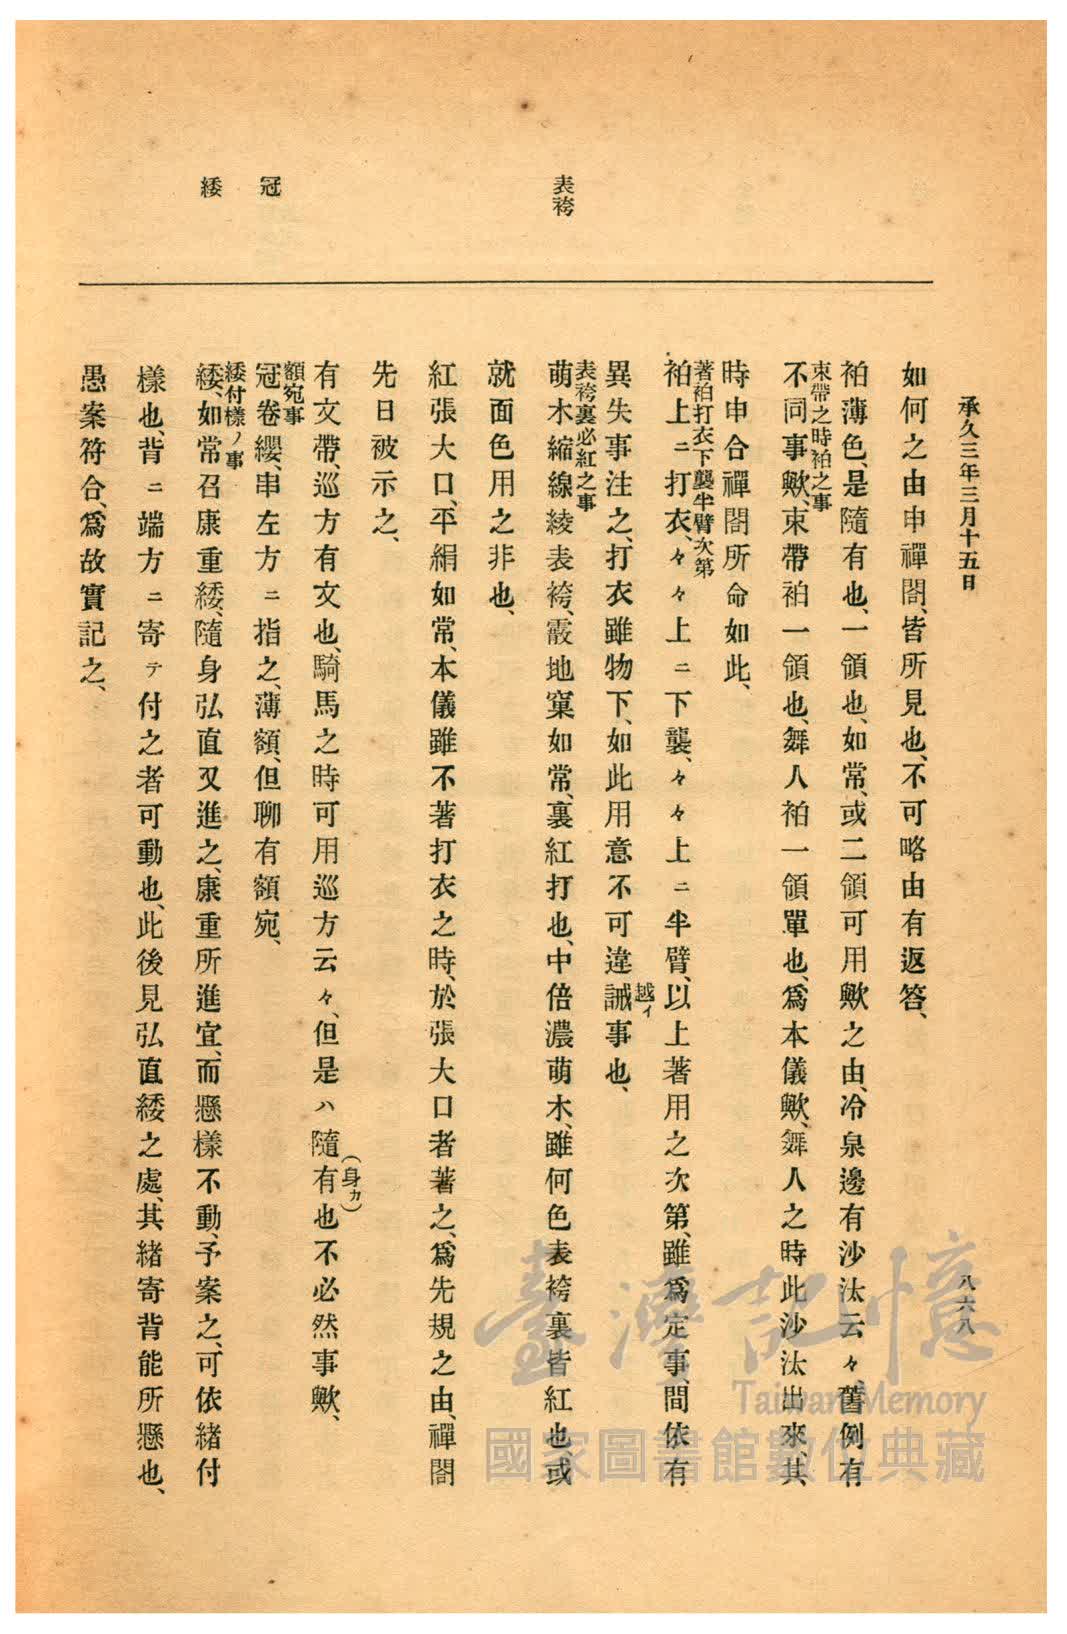 承久三年三月十五日
八六八
表袴
冠
緌
如何之由申禪閤、皆所見也、不可略由有返答、
袙薄色、是隨有也、一領也、如常、或二領可用歟之由、冷泉邊有沙汰云々、舊例有
束帶之時袙之事
不同事歟、束帶袙一領也、舞人袙一領單也、爲本儀歟、舞人之時此沙汰出來、其
時申合禪閤所命如此、
著袙打衣下襲半臂次第
袙上ニ打衣、々々上ニ下襲、々々上ニ半臂、以上著用之次第、雖爲定事、間依有
越イ
異失事注之、打衣雖物下、如此用意不可違誡事也、
表袴裏必紅之事
萌木縮線綾表袴、霰地窠如常、裏紅打也、中倍濃萌木、雖何色表袴裏皆紅也、或
就面色用之非也、
紅張大口、平絹如常、本儀雖不著打衣之時、於張大口者著之、爲先規之由、禪閤
先日被示之、
(身カ)
有文帶、巡方有文也、騎馬之時可用巡方云々、但是ハ隨有也不必然事歟、
額宛事
冠卷纓、串左方ニ指之、薄額、但聊有額宛、
緌付樣ノ事
緌、如常召康重緌、隨身弘直又進之、康重所進宜、而懸樣不動、予案之、可依緒付
樣也、背ニ端方ニ寄テ付之者可動也、此後見弘直緌之處、其緒寄背能所懸也、
愚案符合、爲故實記之、
臺灣記憶
Taiwan Memory
國家圖書館數位典藏